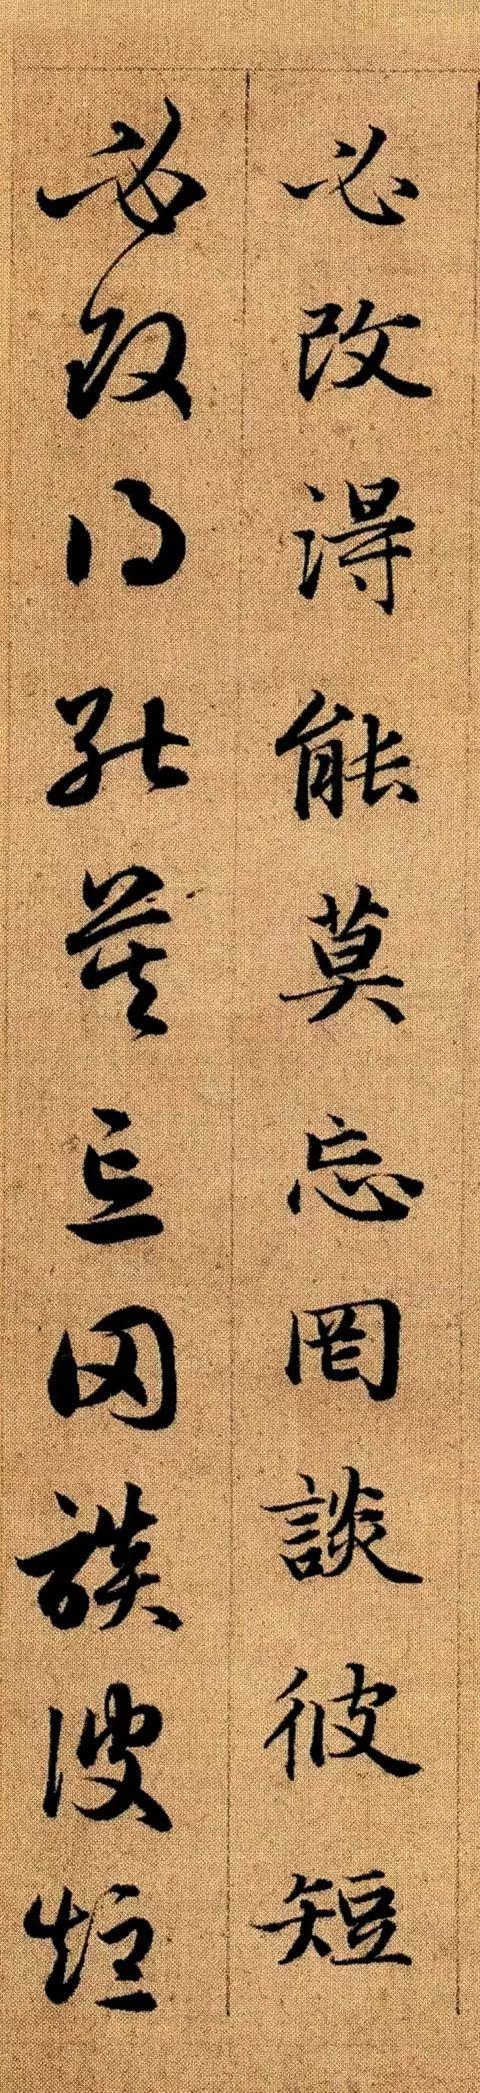 必改得能莫忘罔談彼短
必改得能莫忘罔談彼短